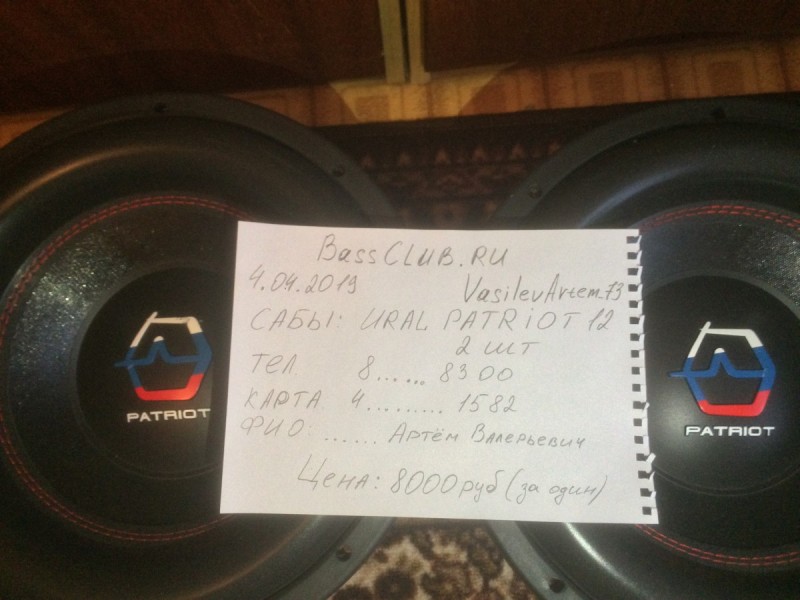 BassCLUB.RU
4.04.2019 VasilevArtem_73
САБЫ: URAL PATRIOT 12
2 шт
Тел. 8...... 8300
КАРТА 4......... 1582
ФИО: ...... Артём Валерьевич
Цена: 8000руб (за один)
PATRIOT
PATRIOT